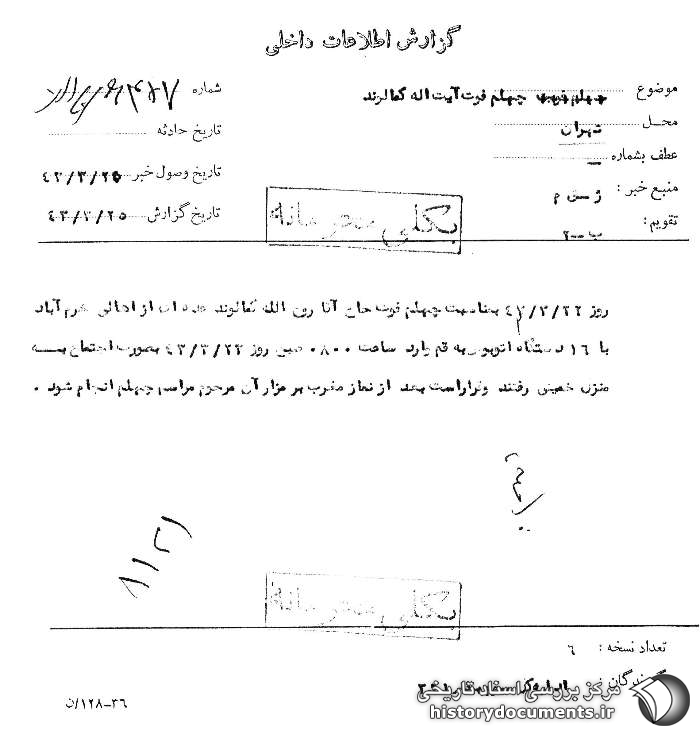 گزارش اطلاعات داخلی
موضوع چهلم فوت آیت اله کمالوند
شماره ۴۸۷
محل تهران
تاریخ حادثه
عطف بشماره —
تاریخ وصول خبر ۴۳/۳/۲۵
منبع خبر :
تاریخ گزارش ۴۳/۳/۲۵
تقویم : ب-۲
بکلی محرمانه
روز ۴۳/۳/۲۲ بمناسبت چهلم فوت حاج آقا روح الله کمالوند عده ای از اهالی خرم آباد
با ۱۶ دستگاه اتوبوس به قم وارد ساعت ۰۸۰۰ صبح روز ۴۳/۳/۲۳ بصورت اجتماع بــه
منزل خمینی رفتند وقراراست بعد از نماز مغرب بر مزار آن مرحوم مراسم چهلم انجام شود .
بکلی محرمانه
تعداد نسخه : ۶
گیرندگان
۱۲۸-۳۶/ن
مرکز بررسی اسناد تاریخی
historydocuments.ir